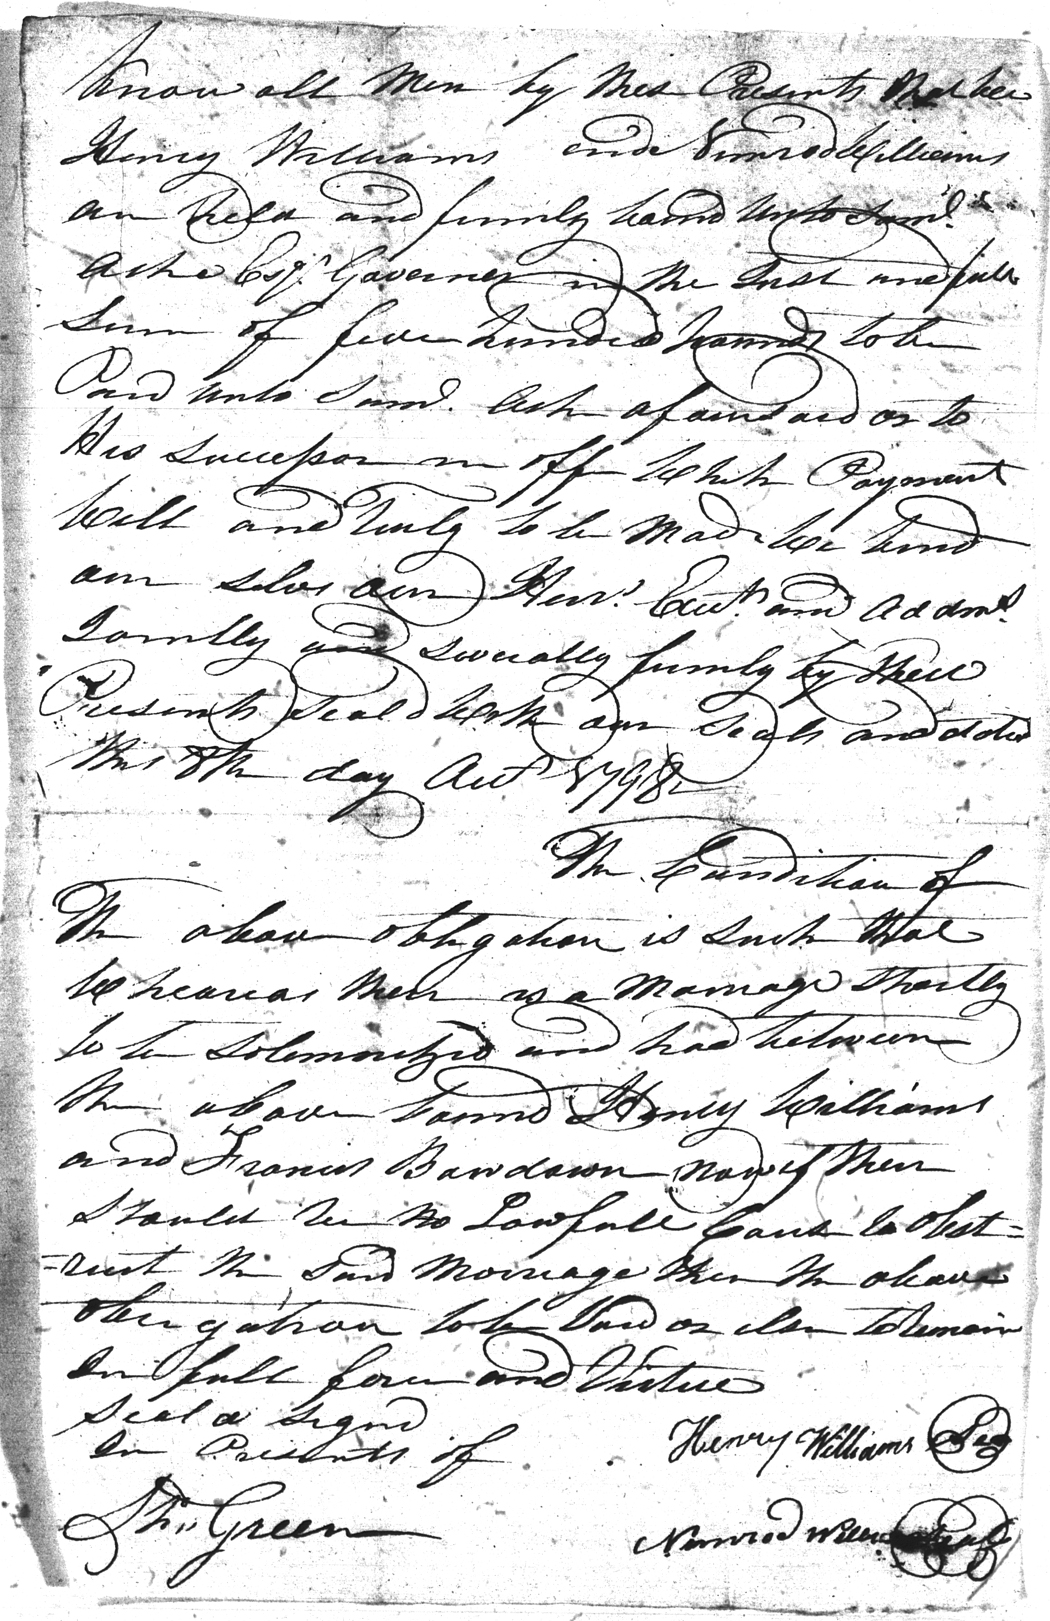 Know all Men by these Presents that we
Henry Williams and Nimrod Williams
are held and firmly bound unto Saml.
Ashe Esqr. Governer in the Just and full
Sum of five hundred pounds to be
Paid unto Saml. Ashe aforesaid or to
His successor in offe Which Payment
Will and Truly to be Made We bind
our selves our Heirs. Exetrs. and Addmrs.
Jointly and severally firmly by these
Presents seald With our seals and dated
this 8th day 1798
The Condition of
The above obligation is such that
Whereas there is a Marriage shortly
to be solemnitzed and had between
the above bound Henry Williams
and Francis Bawdown now if there
should be no Lawfull Cause to obst=
=ruct the said Marriage then the above
obligation to be Void or else to Remain
In full force and Virtue
Seald & signd
In Presents of
Henry Williams Seal
Thos Green
Nimrod Williams Seal